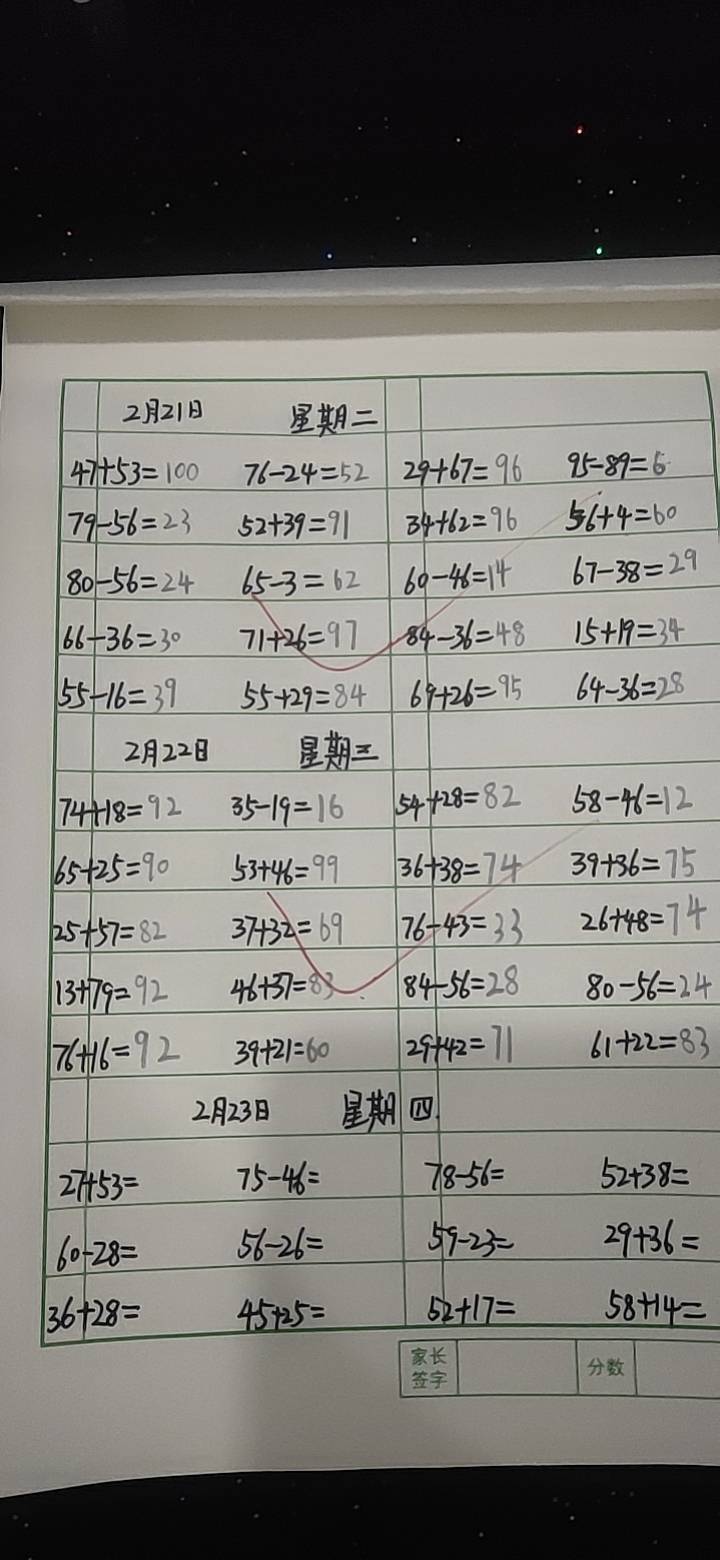 2月21日 星期二
47+53=100 76-24=52 29+67=96 95-89=6
79-56=23 52+39=91 34+62=96 56+4=60
80-56=24 65-3=62 60-46=14 67-38=29
66-36=30 71+26=97 84-36=48 15+19=34
55-16=39 55+29=84 69+26=95 64-36=28
2月22日 星期三
74+18=92 35-19=16 54+28=82 58-46=12
65+25=90 53+46=99 36+38=74 39+36=75
25+57=82 37+32=69 76-43=33 26+48=74
13+79=92 46+37=83 84-56=28 80-56=24
76+16=92 39+21=60 29+42=71 61+22=83
2月23日 星期四
27+53= 75-46= 78-56= 52+38=
60-28= 56-26= 59-23= 29+36=
36+28= 45+25= 52+17= 58+14=
家长签字 分数